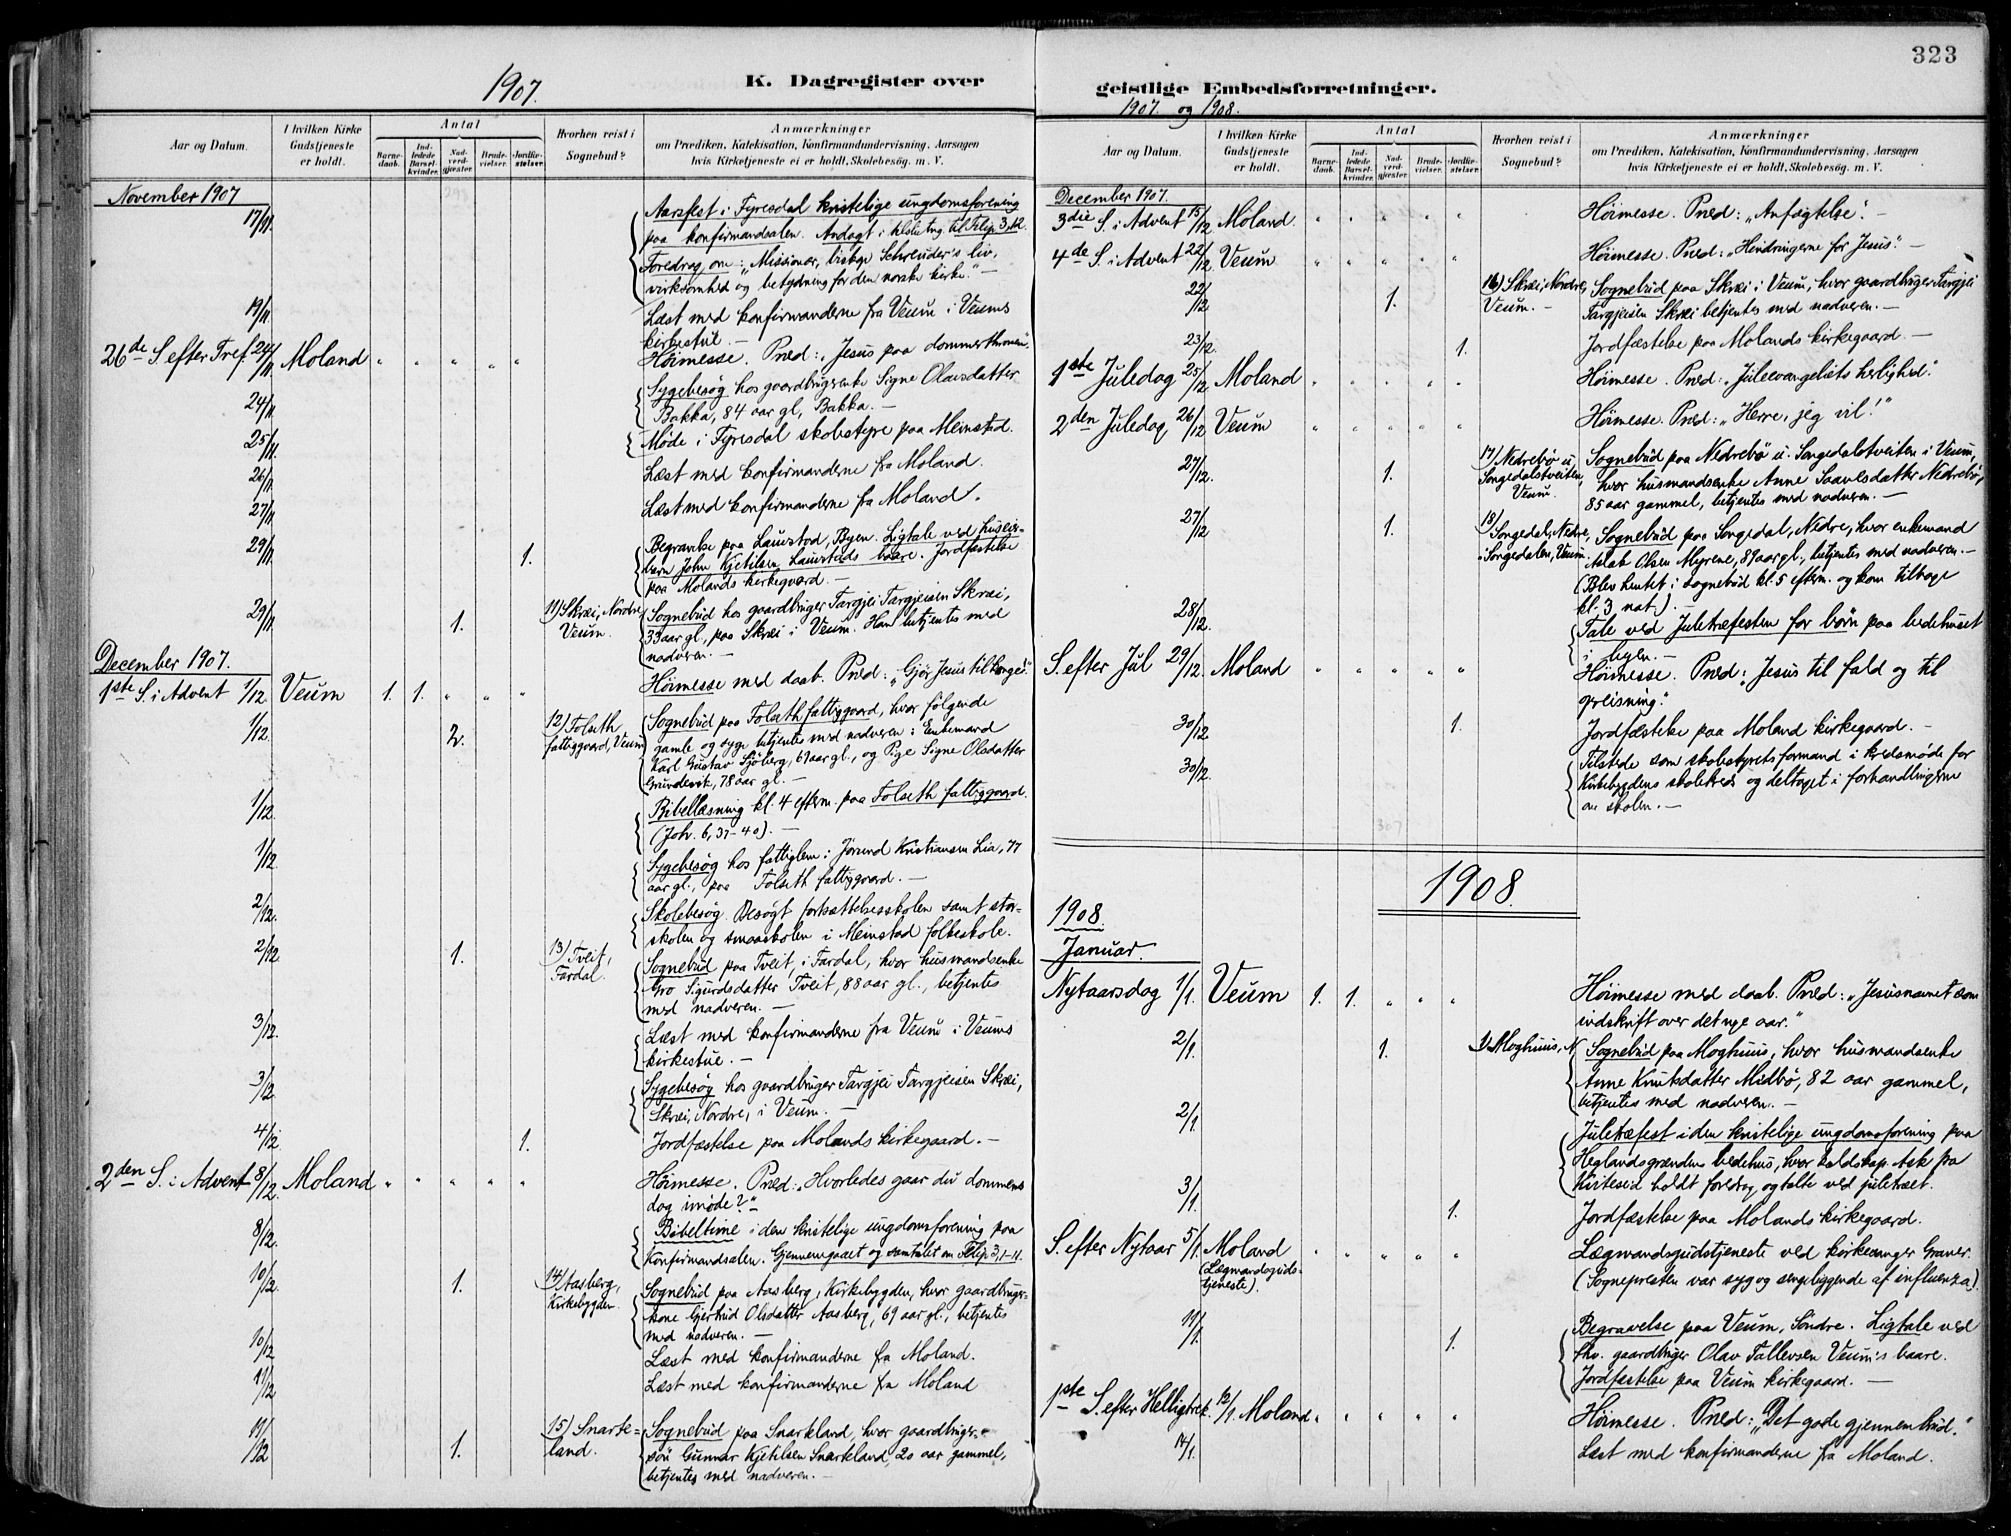 323
K. Dagregister over
1907.
Aar og Datum.
I hvilken Kirke
Gudstjeneste
er holdt.
Antal
Barne-
daab.
Ind-
ledede
Barsel-
kvinder.
Nad-
verd-
gjæster.
Brude-
vielser.
Jordfæ-
stelser.
Hvorhen reist i
Sognebud?
Anmærkninger
om Prædiken, Katekisation, Konfirmandundervisning, Aarsagen
hvis Kirketjeneste ei er holdt, Skolebesøg. m. V.
November 1907
17/11. Aarsfest i Fyresdal kristelige ungdomsforening
paa konfirmandsalen. Andagt i tilslutng. til Filip. 3, 12.
Foredrag om: "Missionær, biskop Schreuder's liv,
virksomhed og betydning for den norske kirke." —
19/11 Læst med konfirmanderne fra Veum i Veums
kirkestue. —
26de S. efter Tref. 24/11 Moland " " " " " Høimesse. Præd: "Jesus paa dommerthronen".
24/11. Sygebesøg hos gaardbrugerenke Signe Olavsdatter
Bakka, 84 aar gl., Bakka. —
25/11. Møde i Fyresdal skolestyre paa Meinstad.
26/11 Læst med konfirmanderne fra Moland.
27/11 Læst med konfirmanderne fra Moland.
29/11. 1. Begravelse paa Laurstad, Byen. Ligtale ved
John Kjetilsen Laurstads baare. Jordfæstelse
paa Molands kirkegaard. —
29/11. 1. 11) Skræi, Nordre, Sognebud hos gaardbruger Targjei Targjeisen Skræi,
Veum. 33 aar gl., paa Skræi i Veum. Han betjentes med
nadveren. —
December 1907.
1ste S. i Advent 1/12 Veum 1. 1. " " " Høimesse med daab. Præd: "Gjør Jesus til konge!"
1/12. 2. 12) Folseth Sognebud paa Folseth fattiggaard, hvor følgende
fattiggaard, Veum gamle og syge betjentes med nadveren: Enkemand
Karl Gustav Sjøberg, 69 aar gl., og Pige Signe Olsdatter
Grundesvik, 78 aar gl. —
1/12. Bibellæsning kl. 4 efterm. paa Folseth fattiggaard.
(Joh. 6, 37-40). —
1/12 Sygebesøg hos fattiglem: Jørund Kristiansen Lia, 77
aar gl., paa Folseth fattiggaard. —
2/12. Skolebesøg. Besøgt fortsættelsesskolen samt stor-
skolen og smaaskolen i Meinstad folkeskole.
2/12 1. 13) Tveit, Sognebud paa Tveit, i Fardal, hvor husmandsenke
Fardal. Gro Sigurdsdatter Tveit, 88 aar gl., betjentes
med nadveren. —
3/12. Læst med konfirmanderne fra Veum i Veums
kirkestue. —
3/12. Sygebesøg hos gaardbruger Targjei Targjeisen Skræi,
Skræi, Nordre, i Veum. —
4/12. 1. Jordfæstelse paa Molands kirkegaard. —
2den S. i Advent 8/12 Moland " " " " " Høimesse. Præd: "Hvorledes gaar du dommens
dag imøde?" —
8/12. Bibeltime i den kristelige ungdomsforening paa
konfirmandsalen. Gjennemgaaet og samtalet om Filip. 3, 1-11.
10/12. 1. 14) Aasberg, Sognebud paa Aasberg, Kirkebygden, hvor gaardbruger-
Kirkebygden. kone Gjertrud Olsdatter Aasberg, 69 aar gl., betjentes
med nadveren. —
10/12 Læst med konfirmanderne fra Moland.
11/12 Læst med konfirmanderne fra Moland
11/12 1. 15) Snarte- Sognebud paa Snarkland, hvor gaardbruger-
land. søn Gunnar Kjetilsen Snarkland, 20 aar gammel,
betjentes med nadveren. —
geistlige Embedsforretninger.
1907. og 1908.
Aar og Datum.
I hvilken Kirke
Gudstjeneste
er holdt.
Antal
Barne-
daab.
Ind-
ledede
Barsel-
kvinder.
Nad-
verd-
gjæster.
Brude-
vielser.
Jordfæ-
stelser.
Hvorhen reist i
Sognebud?
Anmærkninger
om Prædiken, Katekisation, Konfirmandundervisning, Aarsagen
hvis Kirketjeneste ei er holdt, Skolebesøg. m. V.
December 1907.
3die S. i Advent 15/12 Moland. " " " " " Høimesse. Præd: "Anfægtelse". —
4de S. i Advent 22/12 Veum " " " " " Høimesse. Præd: "Hindringerne for Jesus". —
22/12 1. 16) Skræi, Nordre, Sognebud paa Skræi i Veum, hvor gaardbruger Targjei
Veum. — Targjeisen Skræi betjentes med nadveren. —
23/12. 1. Jordfæstelse paa Molands kirkegaard. —
1ste Juledag 25/12 Moland " " " " " Høimesse. Præd: "Juleevangeliets herlighed."
2den Juledag 26/12 Veum " " " " " Høimesse. Præd: "Herre, jeg vil!"
27/12. 1. 17) Nedrebø u. Sognebud paa Nedrebø u. Songedalstveiten i Veum,
Songedalstveiten, hvor husmandsenke Anne Saavesdatter Nedrebø,
Veum. 85 aar gammel, betjentes med nadveren. —
27/12 1. 18) Songedal, Nedre, Sognebud paa Songedal, Nedre, hvor enkemand
i Songedalen, Veum. Aslak Olsen Myrene, 89 aar gl., betjentes med nadveren. —
(Blev hentet i sognebud kl. 5 efterm. og kom tilbage
kl. 3 nat). —
28/12. Tale ved Juletræfesten for børn paa bedehuset
i byen. —
S. efter Jul 29/12 Moland " " " " " Høimesse. Præd: "Jesus til fald og til
opreisning."
30/12 1. Jordfæstelse paa Moland kirkegaard. —
30/12. Tilstede som skolestyrets formand i kredsmøde for
Kirkebygdens skolekreds og deltaget i forhandlingerne
om skolen. —
1908.
1908.
Januar.
Nytaarsdag 1/1. Veum 1. 1. " " " Høimesse med daab. Præd: "Jesusnavnet som
indskrift over det nye aar."
2/1. 1. 1) Moghuus, N. Sognebud paa Moghuus, hvor husmandsenke
Anne Knutsdatter Midbø, 82 aar gammel,
betjentes med nadveren. —
2/1 Juletræfest i den kristelige ungdomsforening paa
Heglandsgrændens bedehus, hvor Ask fra
Kviteseid holdt foredrag og talte ved juletræet.
3/1. 1. Jordfæstelse paa Molands kirkegaard.
S. efter Nytaar 5/1. Moland " " " " " Lægmandsgudstjeneste ved kirkesanger Graner.
(Lægmandsguds-
tjeneste).
(Sognepresten var syg og sengeliggende af influenza).
11/1. 1. Begravelse paa Veum, Søndre. Ligtale ved
fhv. gaardbruger Olav Tallevsen Veum's baare.
Jordfæstelse paa Veum kirkegaard. —
1ste S. efter Helligtrek. 12/1. Moland " " " " " Høimesse. Præd: "Det gode gjennembrud."
14/1. Læst med konfirmanderne fra Moland.